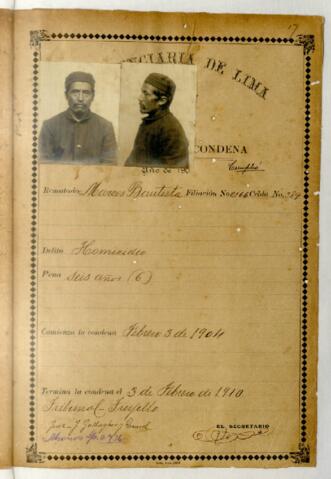 17
CIARIA DE LIMA
CONDENA
Cumplió
Año de 190
Rematado, Marcos Bautista Filiación No. Celda No.
Delito Homicidio
Pena seis años (6)
Comienza la condena Febrero 3 de 1904
Termina la condena el 3 de Febrero de 1910
Tribunal - Trujillo
EL SECRETARIO